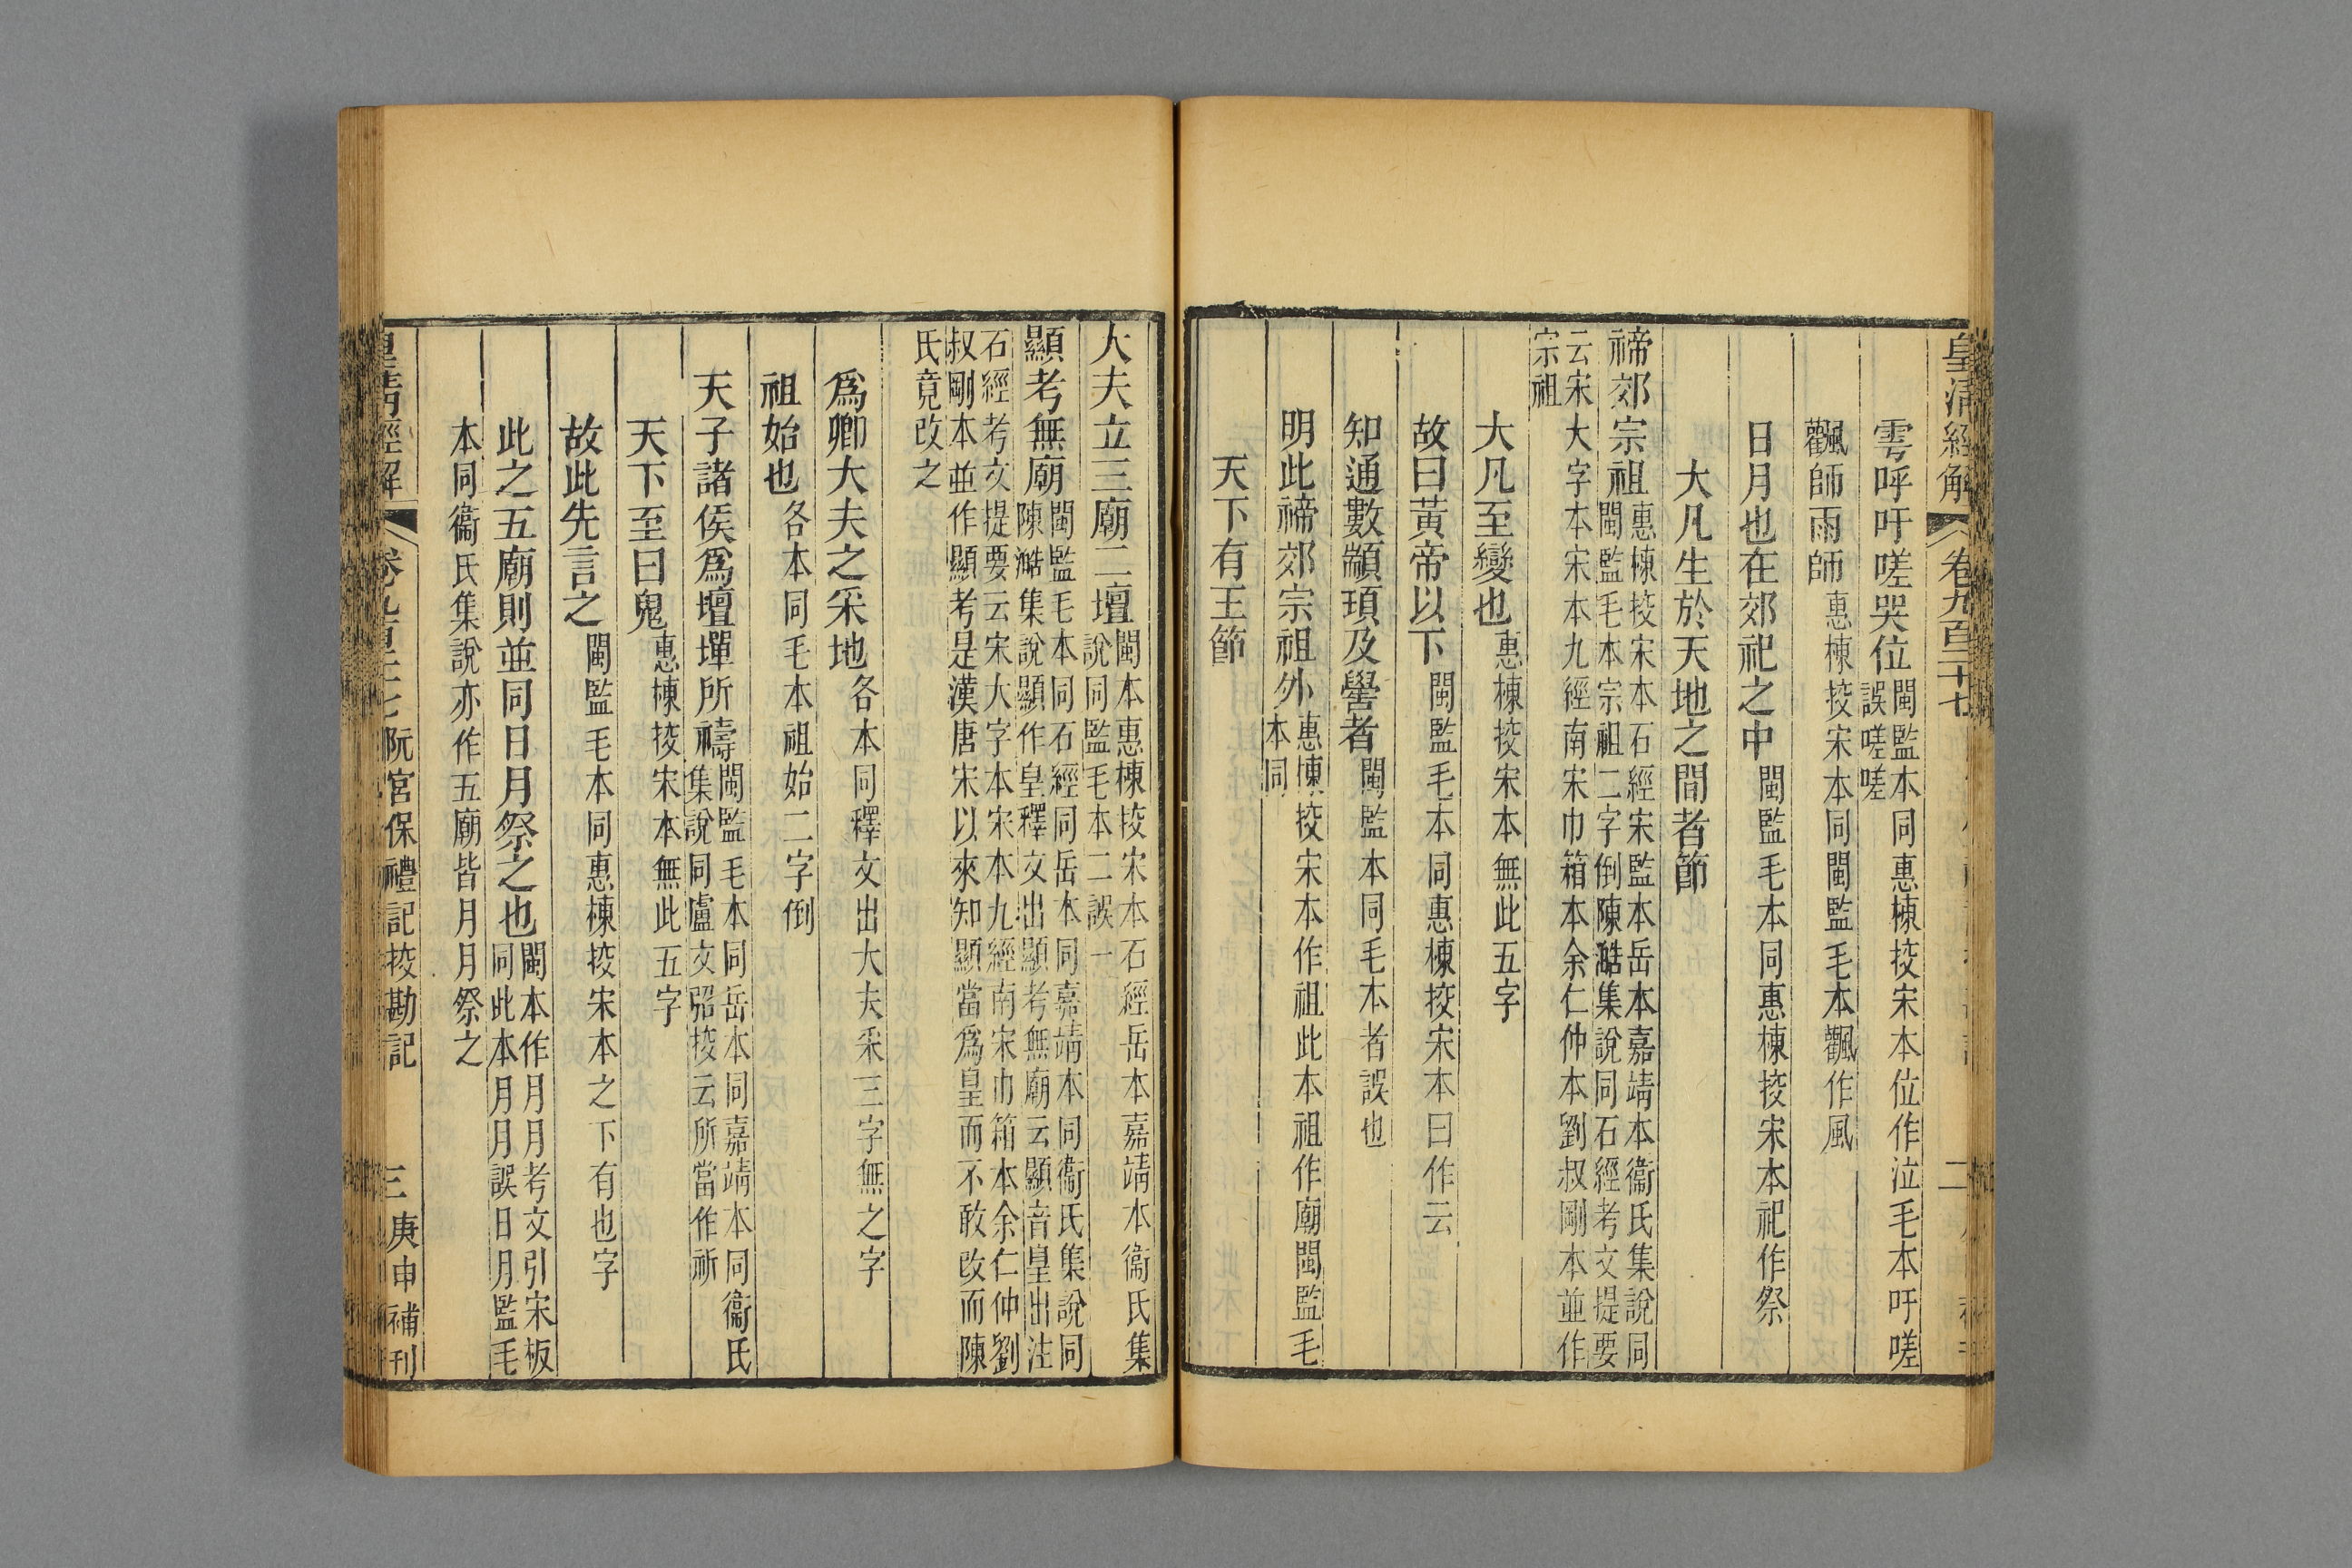 皇清經解 卷九百二十七 二
雩呼吁嗟哭位閩監本同惠棟挍宋本位作泣毛本吁嗟誤嗟嗟
飌師雨師惠棟挍宋本同閩監毛本飌作風
日月也在郊祀之中閩監毛本同惠棟挍宋本祀作祭
大凡生於天地之間者節
禘郊宗祖惠棟挍宋本石經宋監本岳本嘉靖本衞氏集說同閩監毛本宗祖二字倒陳澔集說同石經考文提要
云宋大字本宋本九經南宋巾箱本余仁仲本劉叔剛本並作宗祖
大凡至變也惠棟挍宋本無此五字
故曰黃帝以下閩監毛本同惠棟挍宋本曰作云
知通數顓頊及嚳者閩監本同毛本者誤也
明此禘郊宗祖外惠棟挍宋本作祖此本祖作廟閩監毛本同
天下有王節
大夫立三廟二壇閩本惠棟挍宋本石經岳本嘉靖本衞氏集說同監毛本二誤一
顯考無廟閩監毛本同石經同岳本同嘉靖本同衞氏集說同陳澔集說顯作皇釋文出顯考無廟云顯音皇出注
石經考文提要云宋大字本宋本九經南宋巾箱本余仁仲劉叔剛本並作顯考是漢唐宋以來知顯當爲皇而不敢改而陳
氏竟改之
爲卿大夫之采地各本同釋文出大夫采三字無之字
祖始也各本同毛本祖始二字倒
天子諸侯爲壇墠所禱閩監毛本同岳本同嘉靖本同衞氏集說同盧文弨挍云所當作祈
天下至曰鬼惠棟挍宋本無此五字
故此先言之閩監毛本同惠棟挍宋本之下有也字
此之五廟則並同日月祭之也閩本作月月考文引宋板同此本月月誤日月監毛
本同衞氏集說亦作五廟皆月月祭之
皇淸經解 卷九百二十七 阮宮保禮記挍勘記 三 庚申補刊